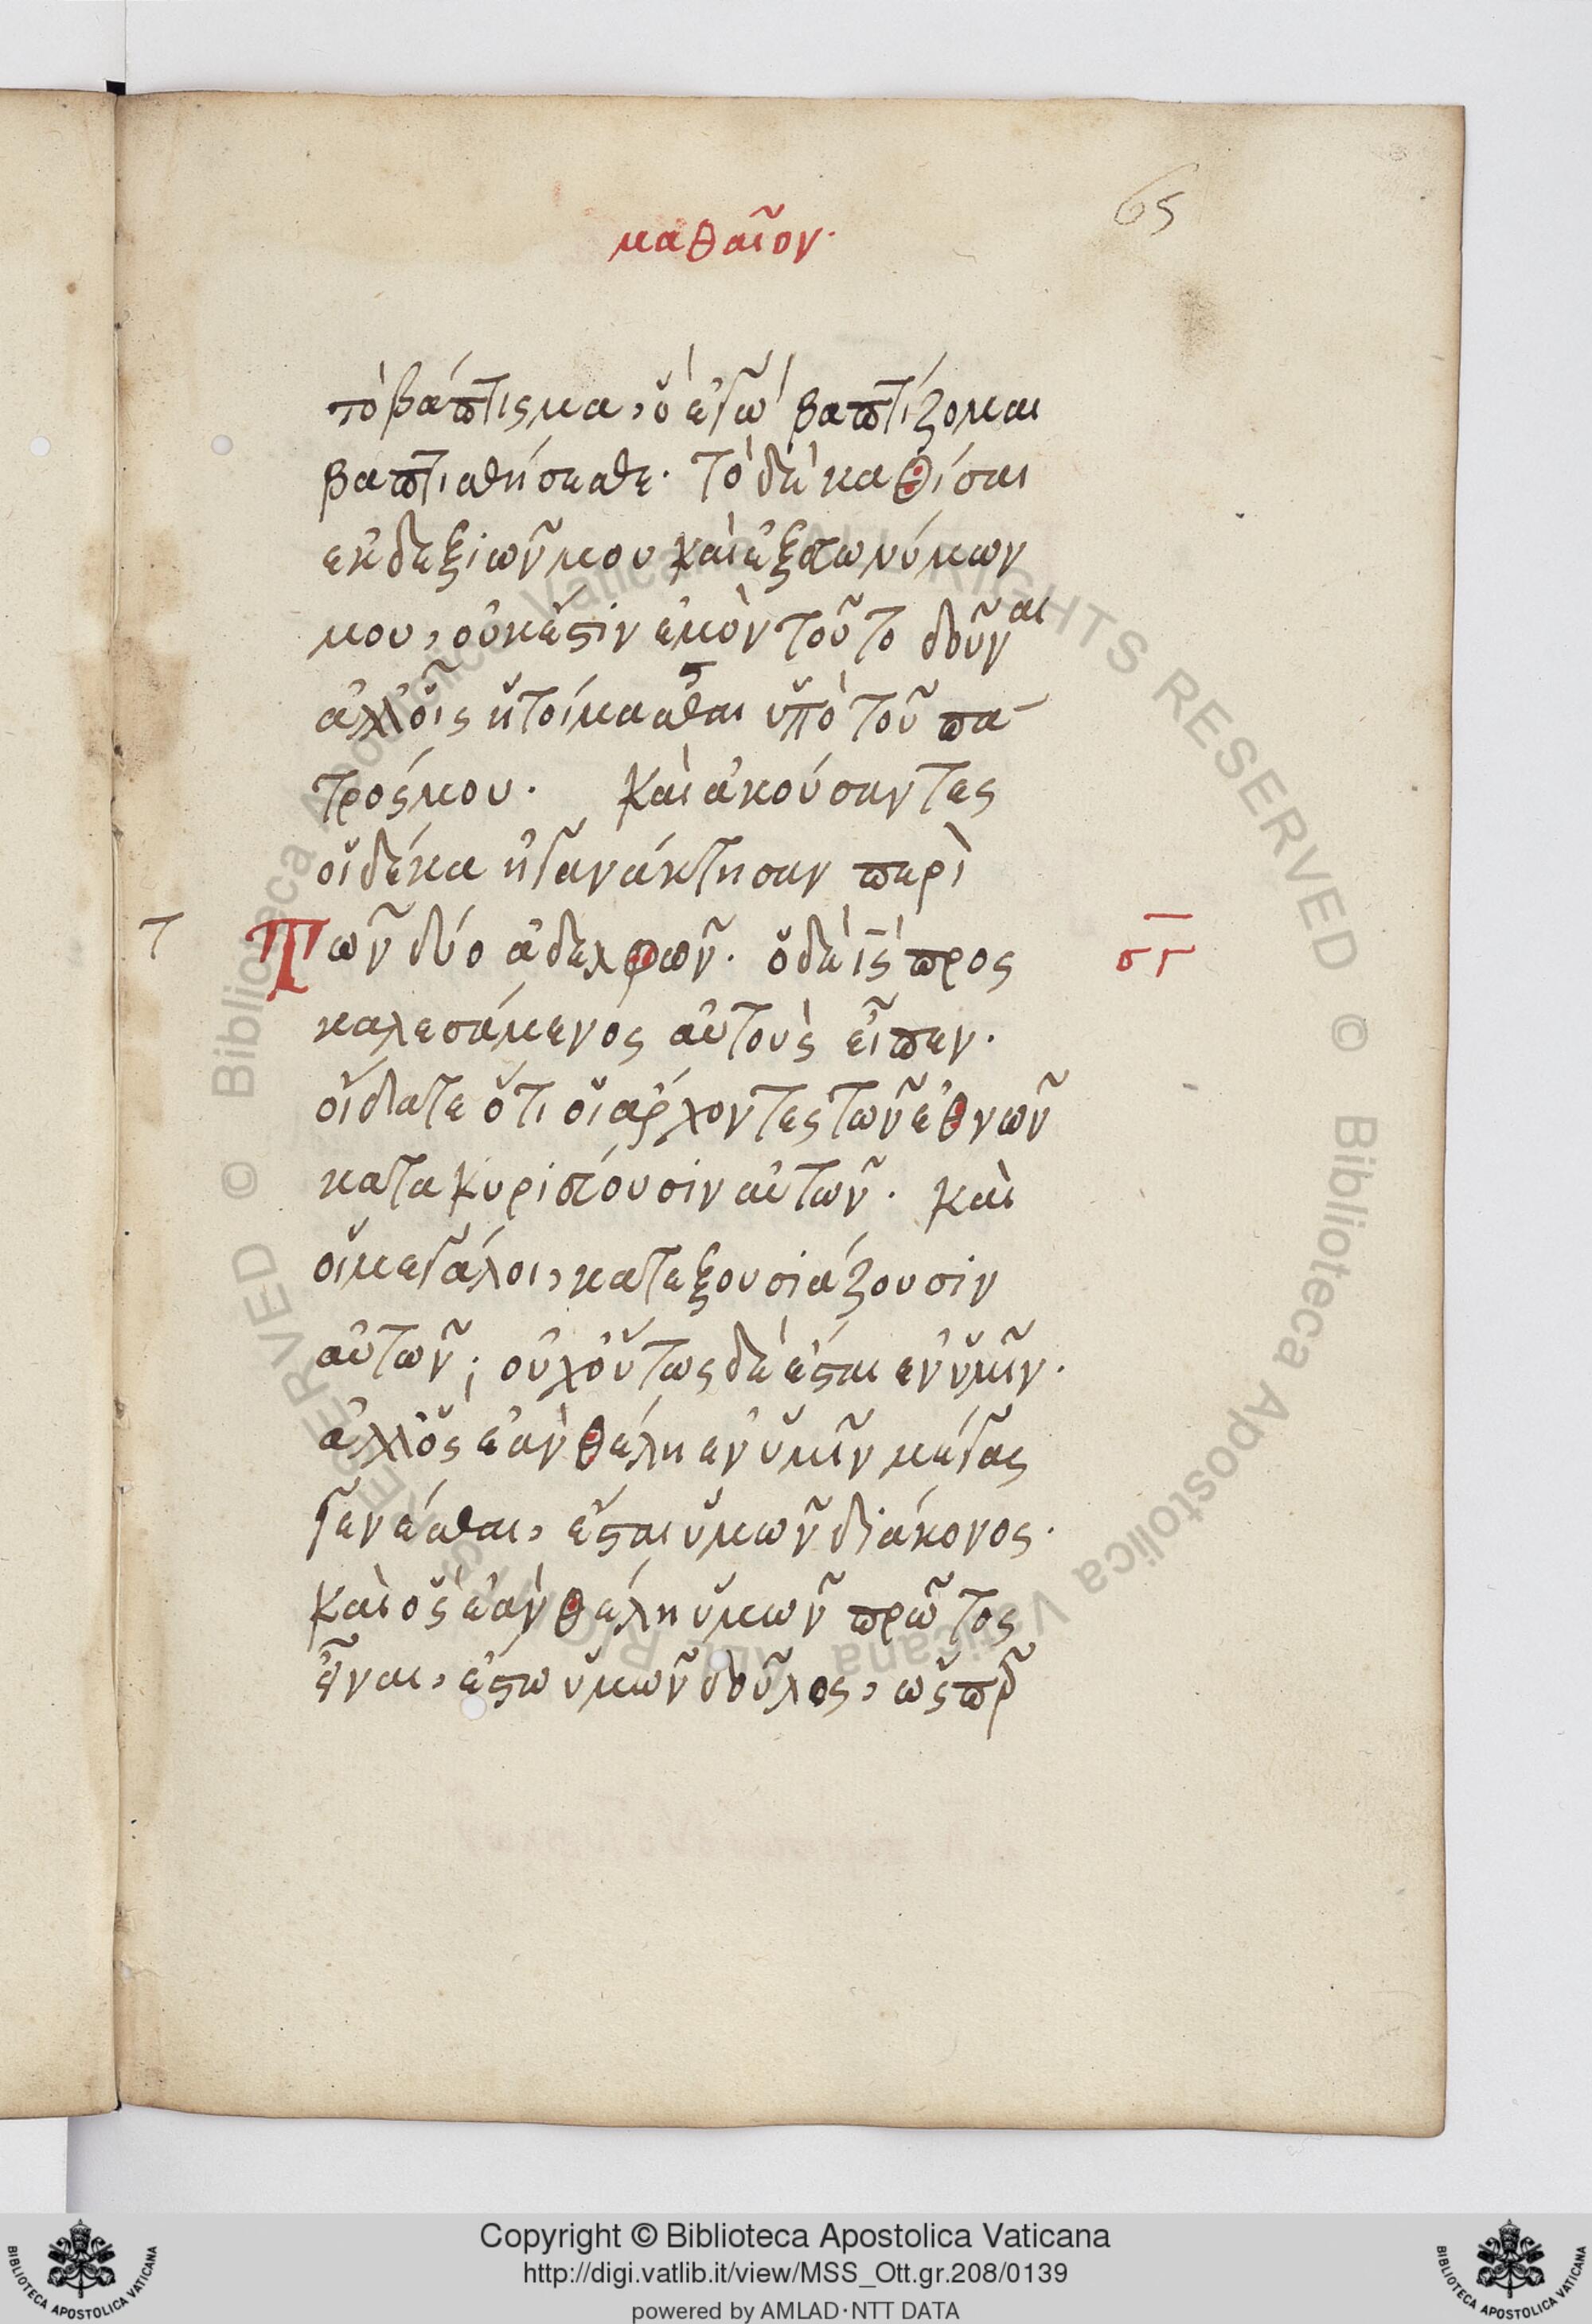 65
μαθαῖον·
τὸ βάπτισμα, ὃ ἐγὼ βαπτίζομαι
βαπτισθήσεσθε· τὸ δὲ καθίσαι
ἐκ δεξιῶν μου καὶ ἐξ εὐωνύμων
μου, οὐκ ἔστιν ἐμὸν τοῦτο δοῦναι
ἀλλ' οἷς ἡτοίμασται ὑπὸ τοῦ πα-
τρός μου· Καὶ ἀκούσαντες
οἱ δέκα ἠγανάκτησαν περὶ
τ Τῶν δύο ἀδελφῶν· ὁ δὲ ις προς σγ
καλεσάμενος αὐτοὺς εἶπεν·
οἴδατε ὅτι οἱ ἄρχοντες τῶν ἐθνῶν
κατακυριεύουσιν αὐτῶν· καὶ
οἱ μεγάλοι, κατεξουσιάζουσιν
αὐτῶν; οὐχ οὕτως δὲ ἔσται ἐν ὑμῖν·
ἀλλ' ὃς ἐὰν θέλη ἐν ὑμῖν μέγας
γενέσθαι, ἔσται ὑμῶν διάκονος·
καὶ ὃς ἐὰν θέλη ὑμῶν πρῶτος
εἶναι, ἔστω ὑμῶν δοῦλος, ὥσπερ
© Biblioteca Apostolica Vaticana ALL RIGHTS RESERVED © Biblioteca Apostolica Vaticana ALL RIGHTS RESERVED
Copyright © Biblioteca Apostolica Vaticana
http://digi.vatlib.it/view/MSS_Ott.gr.208/0139
powered by AMLAD·NTT DATA
BIBLIOTECA APOSTOLICA VATICANA
BIBLIOTECA APOSTOLICA VATICANA